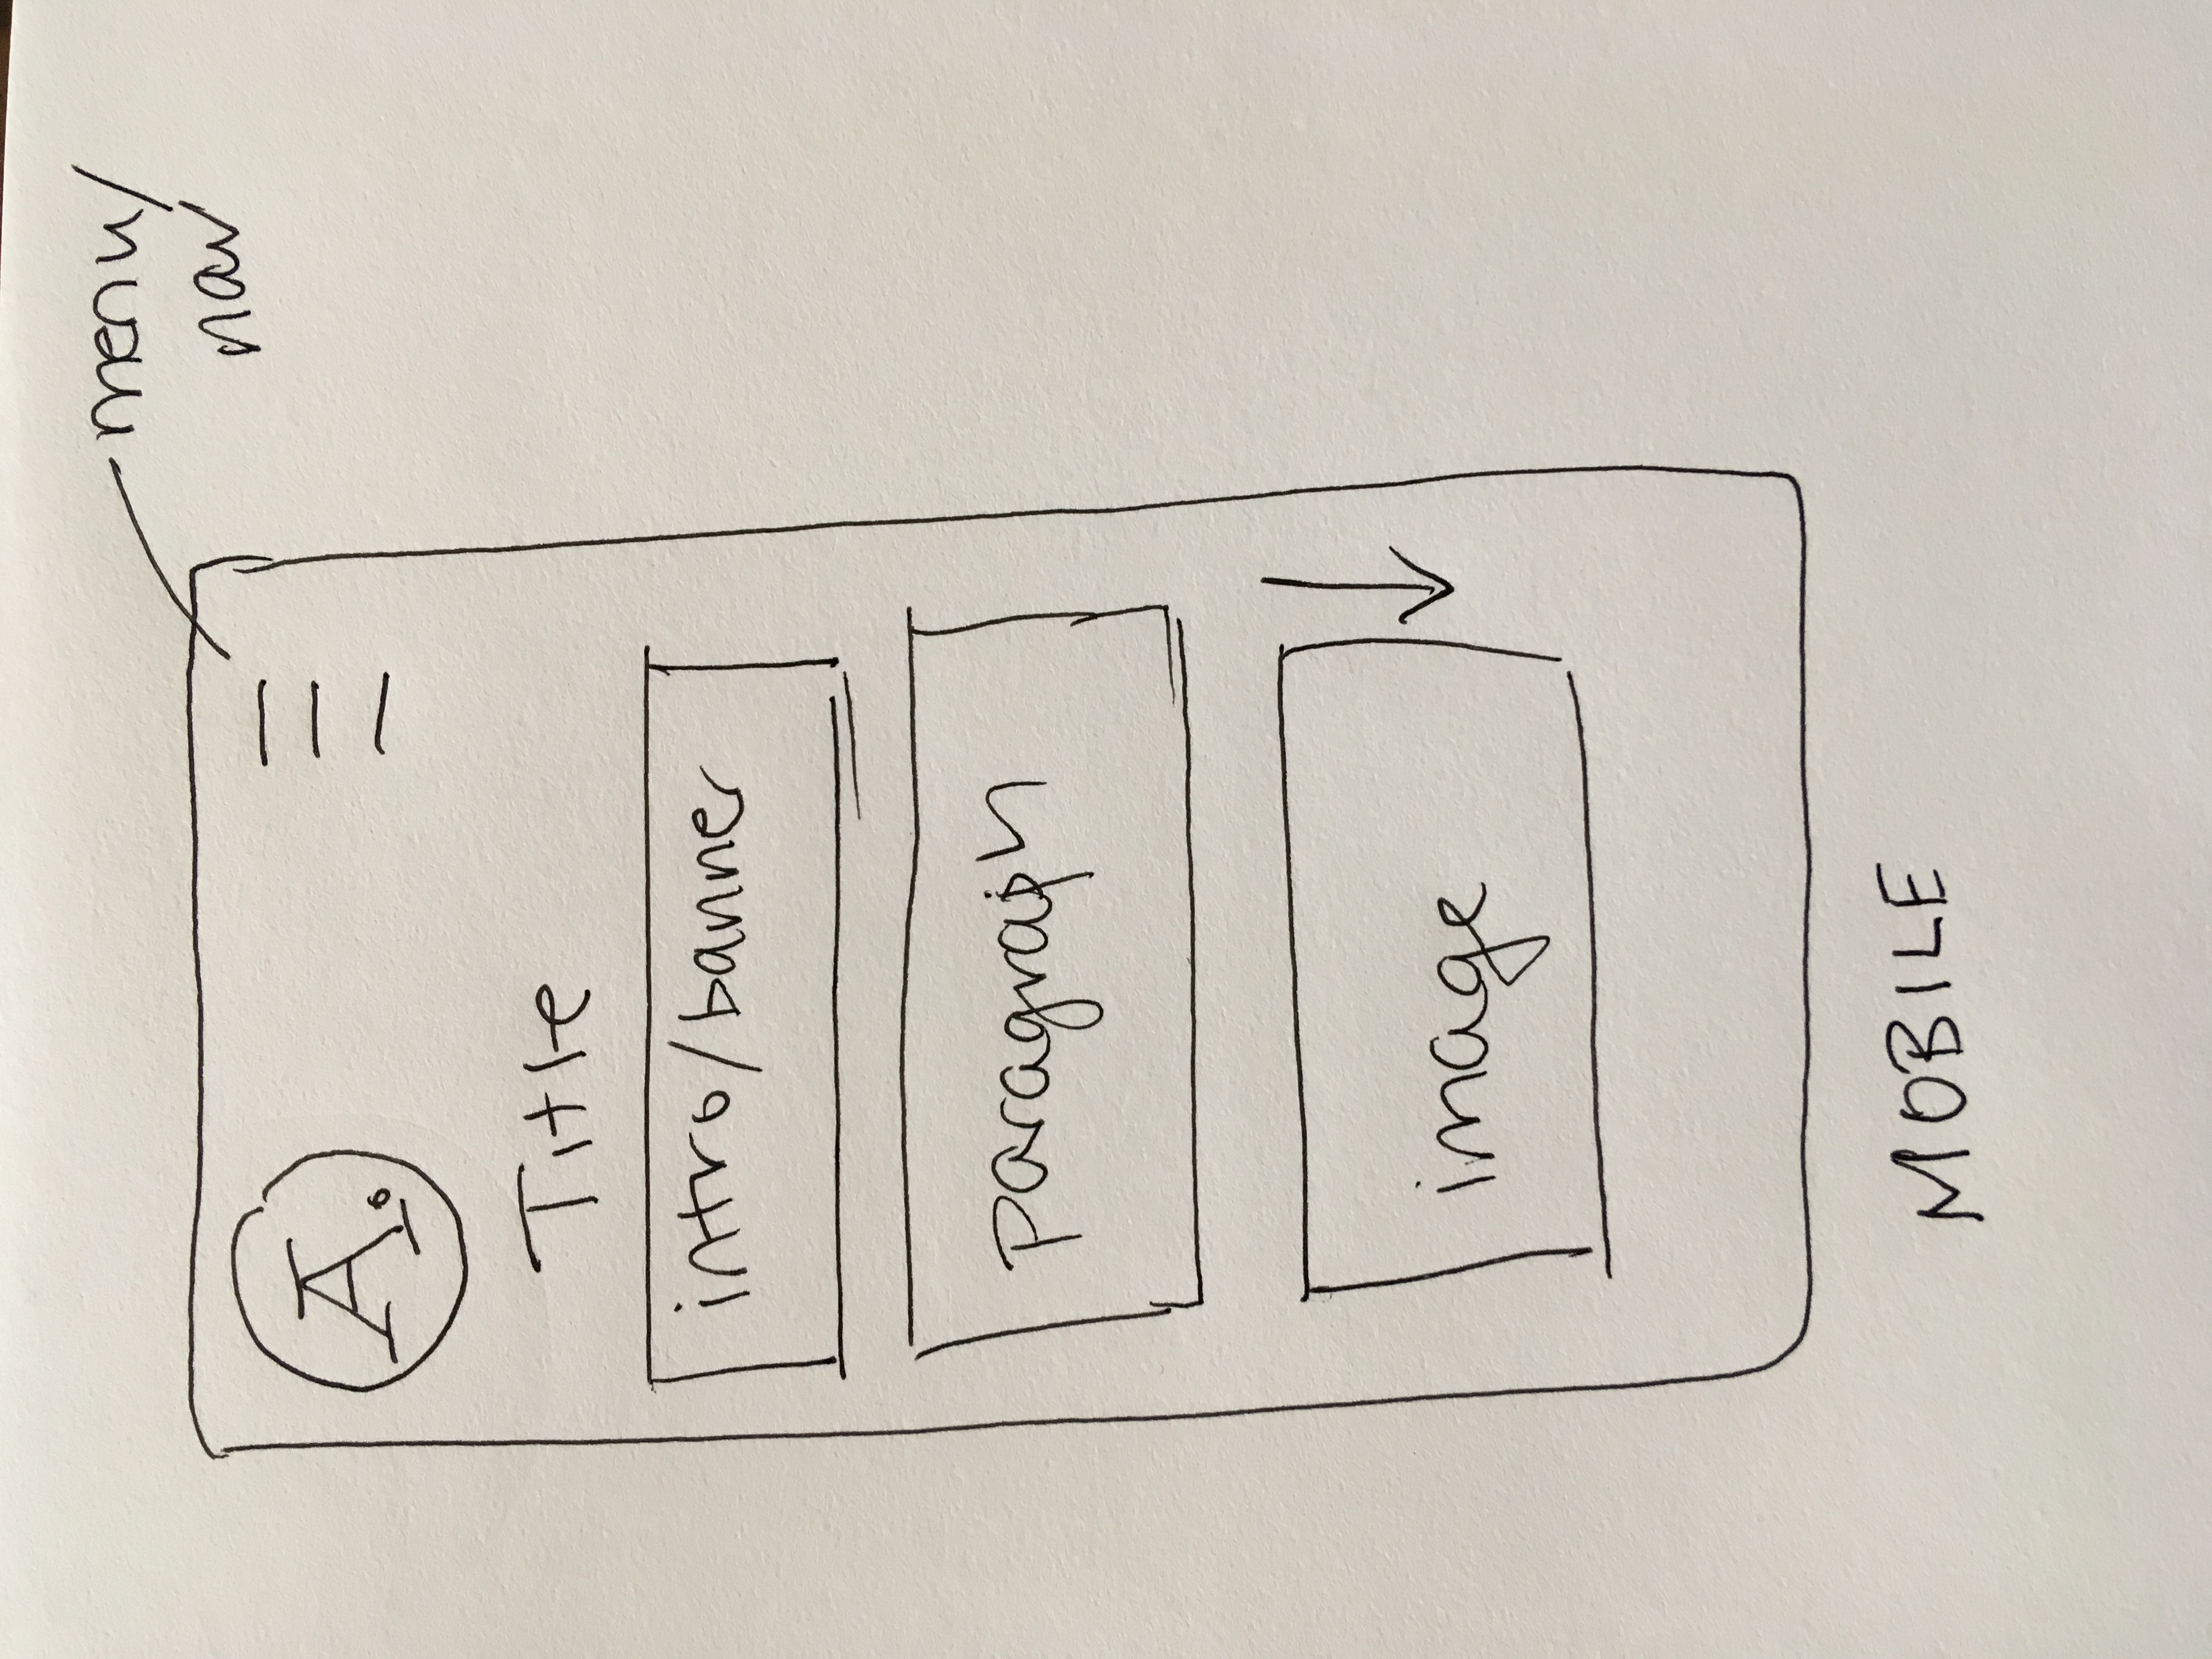 menu/
nav
A.
Title
intro/banner
paragraph
image
MOBILE